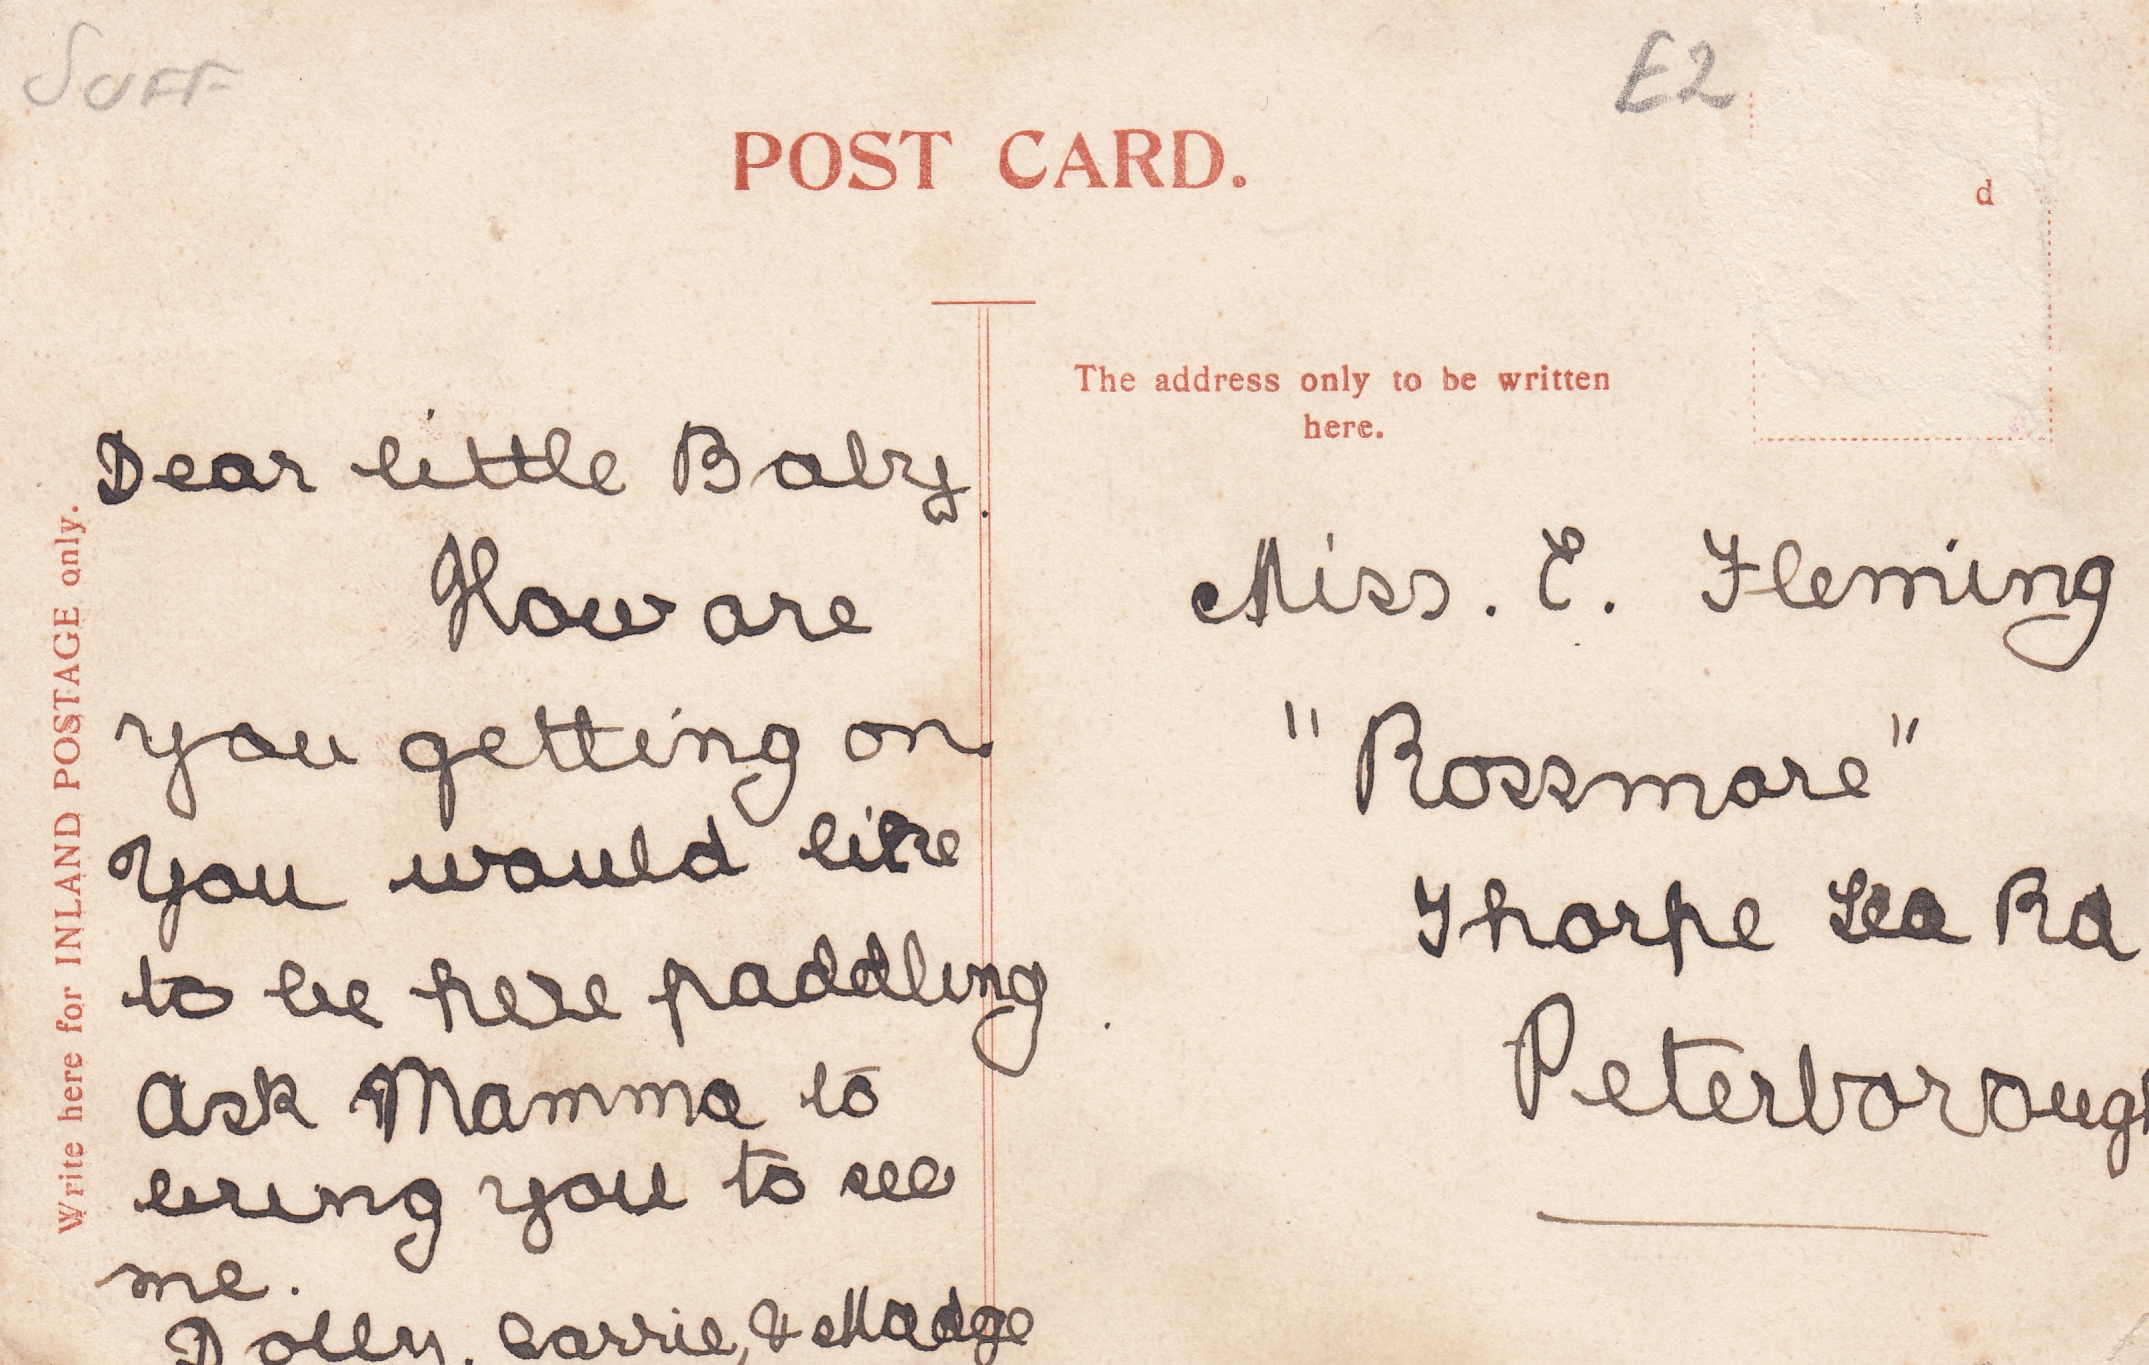 SUFF
E2
POST CARD.
d
The address only to be written
here.
Write here for INLAND POSTAGE only.
Dear little Baby.
How are
you getting on.
You would like
to be here paddling
Ask Mamma to
bring you to see
me.
Dolly, Carrie, & Madge
Miss. E. Fleming
"Rossmore"
Thorpe Lea Rd
Peterborough